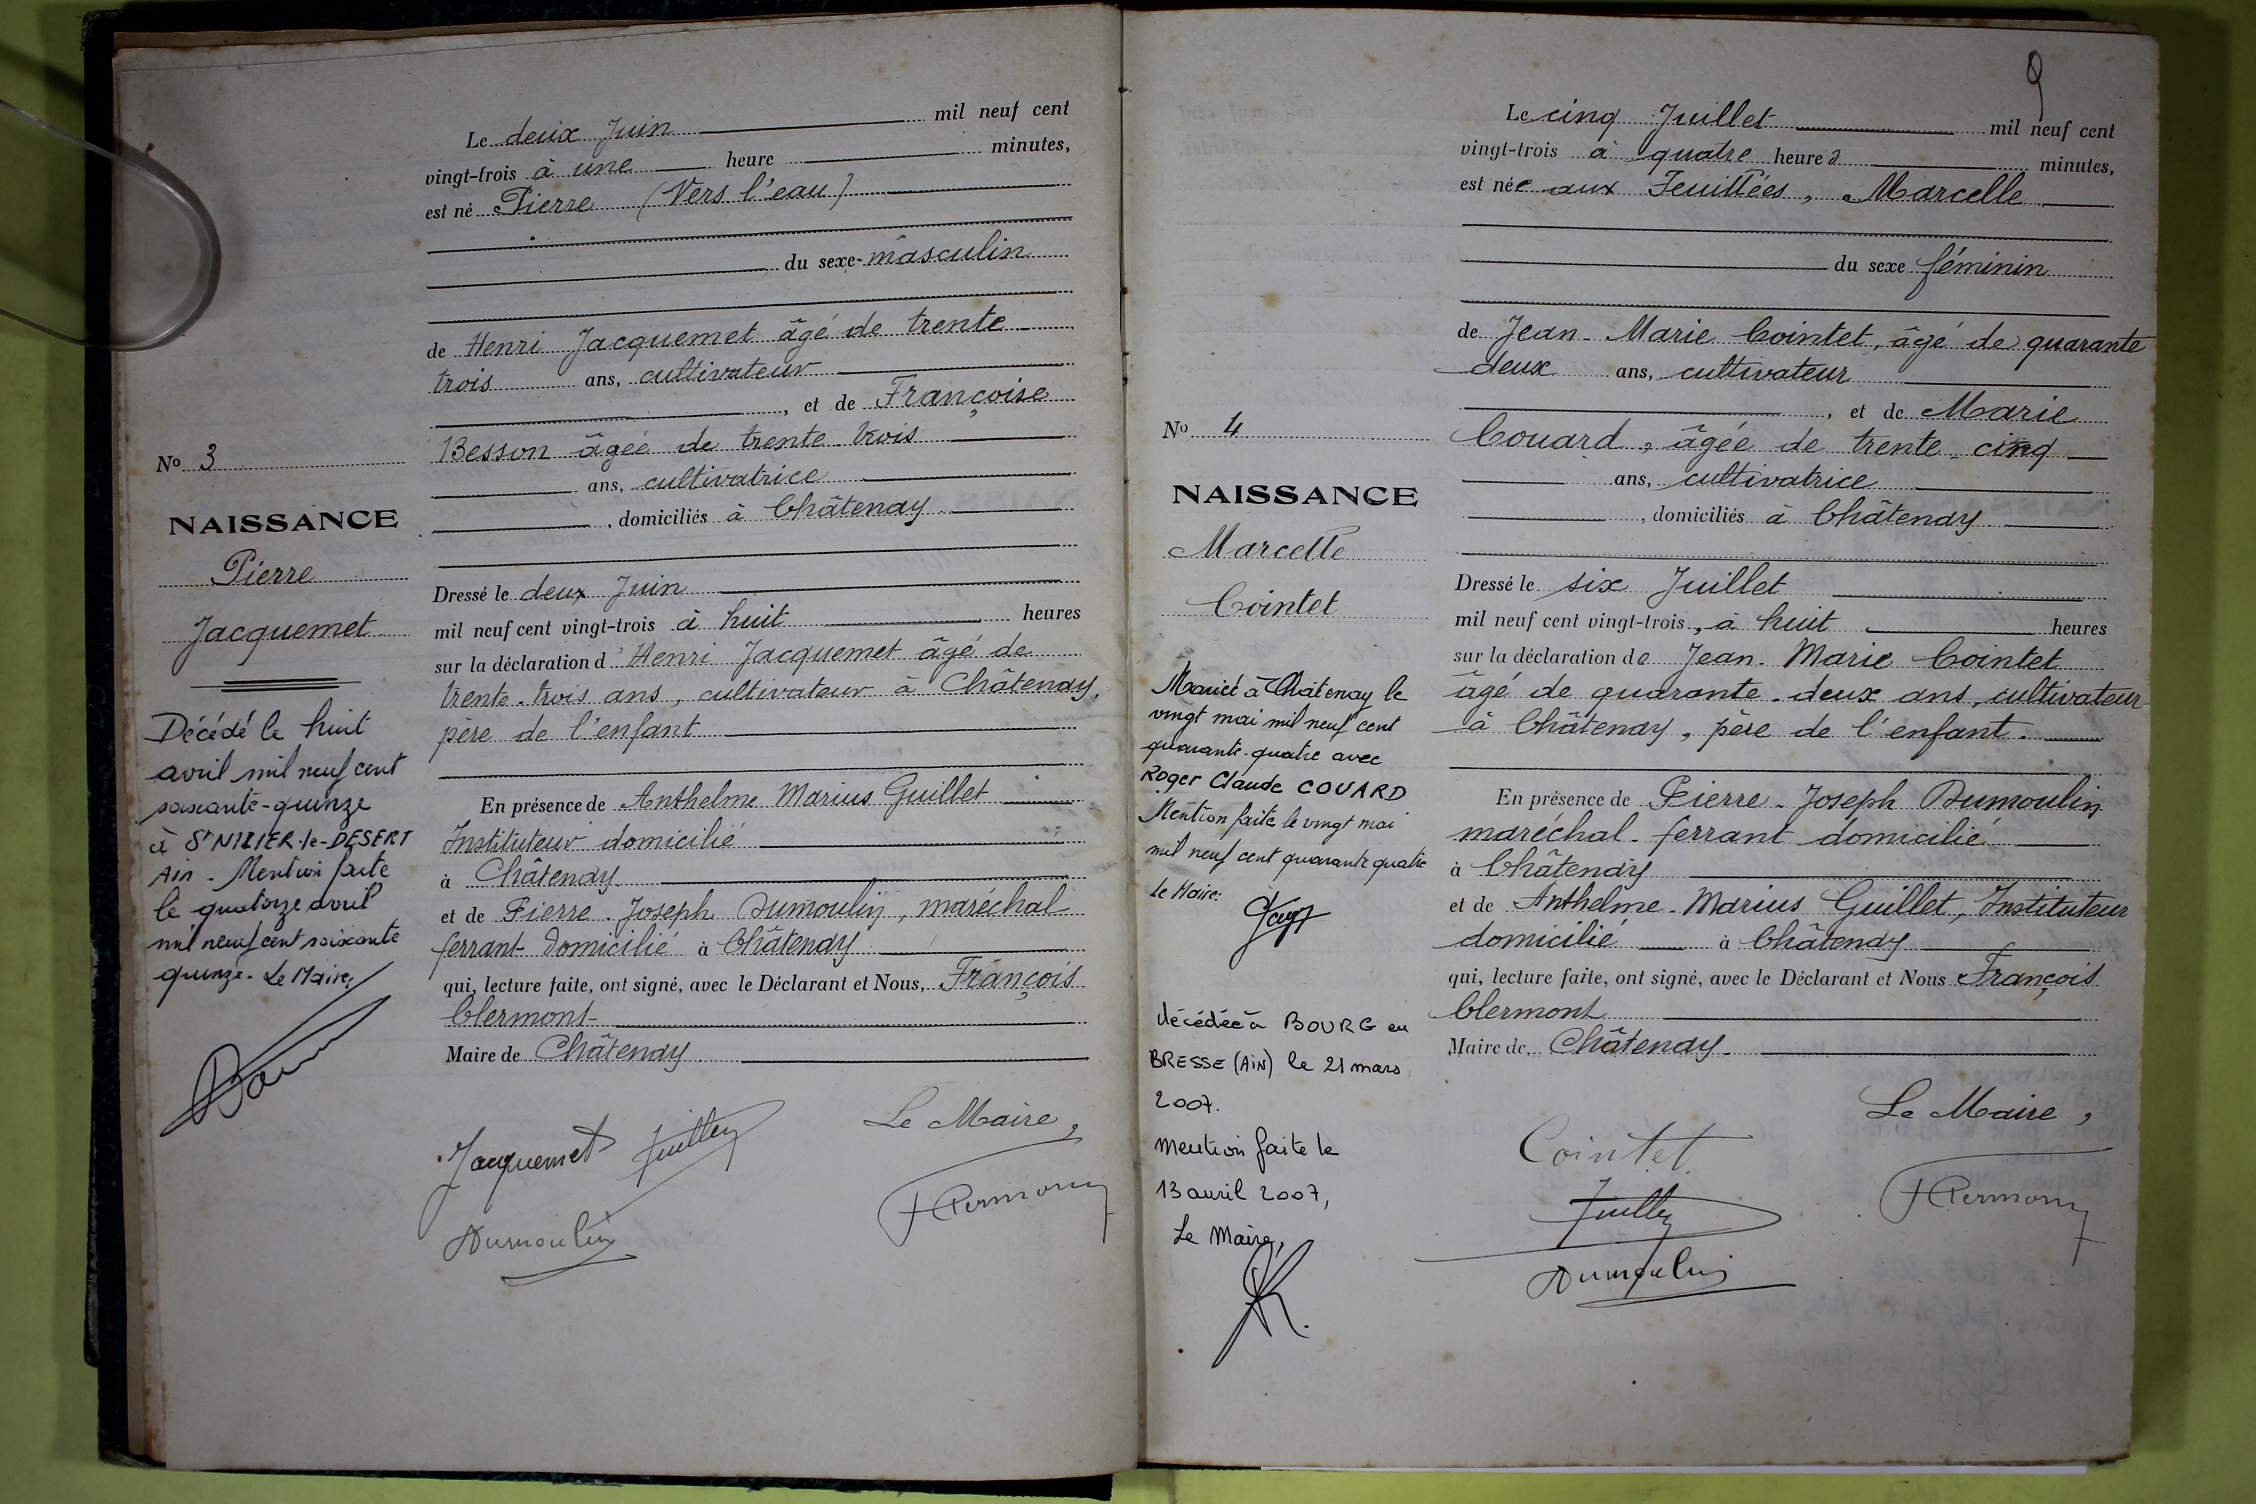 Le deux Juin mil neuf cent
vingt-trois à une heure minutes,
est né Pierre (Vers l'eau)
du sexe masculin
de Henri Jacquemet âgé de trente
trois ans, cultivateur
, et de Françoise
Besson âgée de trente-trois
ans, cultivatrice
, domiciliés à Châtenay
Dressé le deux Juin
mil neuf cent vingt-trois à huit heures
sur la déclaration d'Henri Jacquemet âgé de
trente-trois ans, cultivateur à Châtenay,
père de l'enfant
En présence de Anthelme Marius Guillet
Instituteur domicilié
à Châtenay
et de Pierre-Joseph Dumoulin, maréchal
ferrant domicilié à Châtenay
qui, lecture faite, ont signé, avec le Déclarant et Nous, François
Clermont
Maire de Châtenay
Le Maire,
Jacquemet
Dumoulin
No 3
NAISSANCE
Pierre
Jacquemet
Décédé le huit
avril mil neuf cent
soixante-quinze
à St NIZIER-le-DESERT
Ain - Mention faite
le quatorze avril
mil neuf cent soixante
quinze - Le Maire,
9
Le cinq Juillet mil neuf cent
vingt-trois à quatre heures minutes,
est née aux Feuillées, Marcelle
du sexe féminin
de Jean-Marie Cointet, âgé de quarante
deux ans, cultivateur
, et de Marie
Couard, âgée de trente-cinq
ans, cultivatrice
, domiciliés à Châtenay
Dressé le six Juillet
mil neuf cent vingt-trois, à huit heures
sur la déclaration de Jean-Marie Cointet
âgé de quarante-deux ans, cultivateur
à Châtenay, père de l'enfant.
En présence de Pierre-Joseph Dumoulin
maréchal-ferrant domicilié
à Châtenay
et de Anthelme-Marius Guillet, Instituteur
domicilié à Châtenay
qui, lecture faite, ont signé, avec le Déclarant et Nous François
Clermont
Maire de Châtenay.
Le Maire,
Cointet
Dumoulin
No 4
NAISSANCE
Marcelle
Cointet
Mariée à Châtenay le
vingt mai mil neuf cent
quarante-quatre avec
Roger Claude COUARD
Mention faite le vingt mai
mil neuf cent quarante quatre
Le Maire.
décédée à BOURG en
BRESSE (AIN) le 21 mars
2007.
mention faite le
13 avril 2007,
Le Maire,